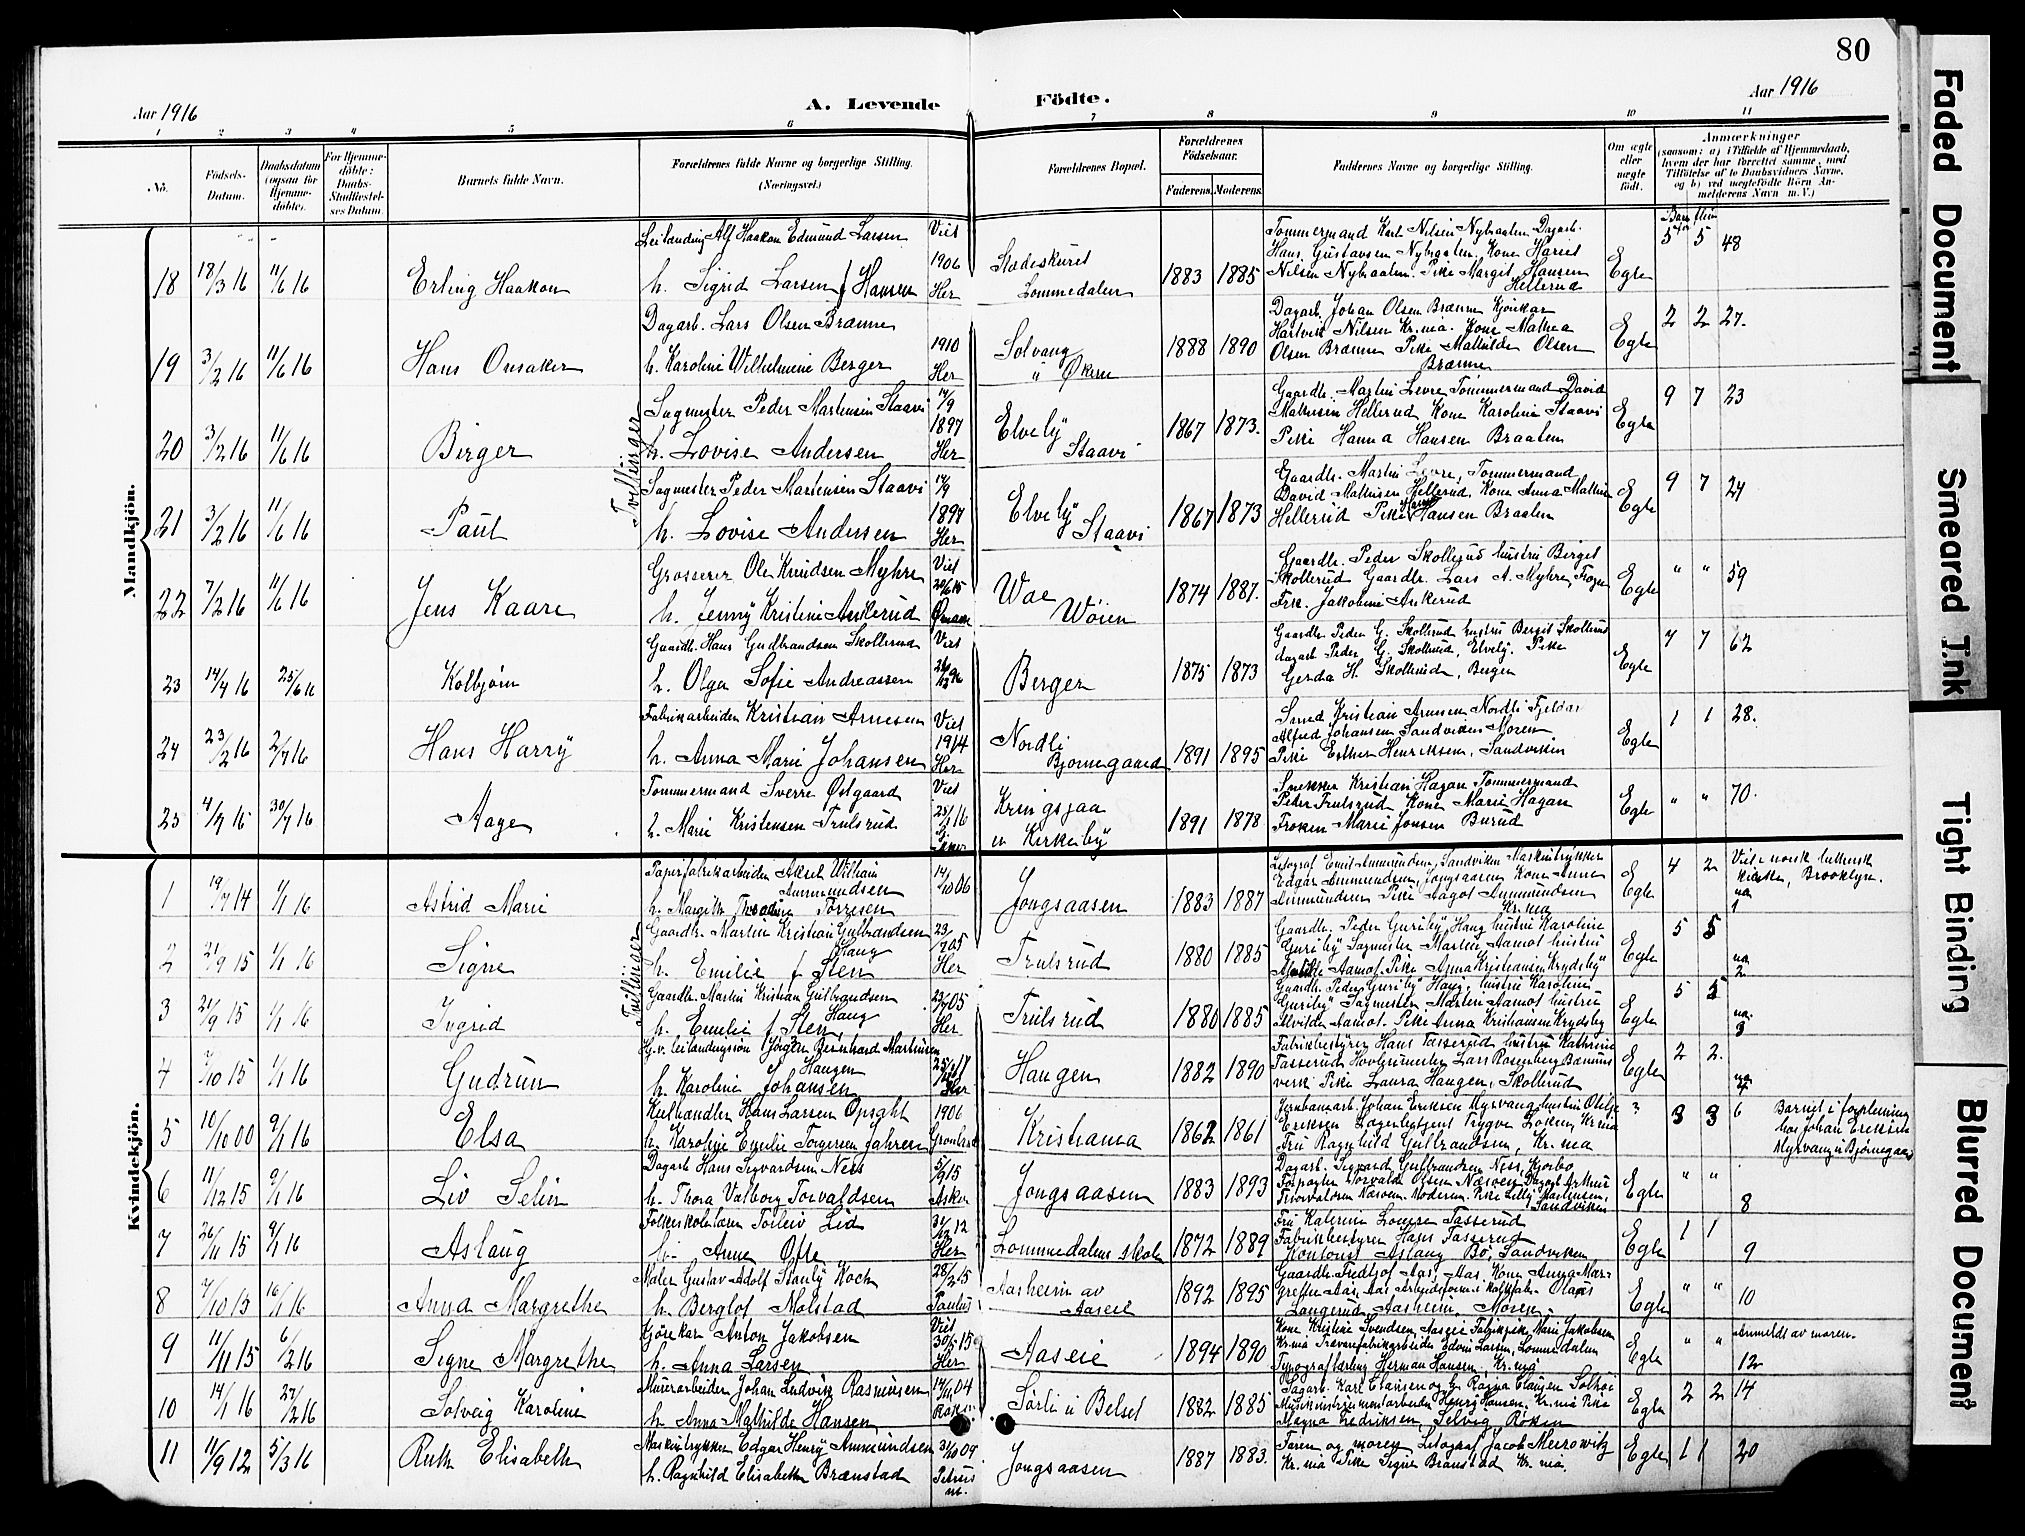 80
Aar 1916
A. Levende Födte.
Aar 1916
1 2 3 4 5 6 7 8 9 10 11
No.
Födsels-Datum.
Daabsdatum (ogsaa for Hjemme-döbte).
For Hjemme-döbte: Daabs-Stadfæstel-ses Datum.
Barnets fulde Navn.
Forældrenes fulde Navne og borgerlige Stilling. (Næringsvei.)
Forældrenes Bopæl.
Forældrenes Födselsaar.
Faderens. Moderens.
Faddernes Navne og borgerlige Stilling.
Om ægte eller uægte födt.
Anmærkninger
(saasom: a) i Tilfælde af Hjemmedaab, hvem der har forrettet samme, med Tilföielse af to Daabsvidners Navne, og b) ved uægtefödte Börn Anmelderens Navn m. V.)
Mandkjön.
Leilending Alf Haakon Edmund Larsen Viet
18 18/3 16 11/6 16 Erling Haakon h. Sigrid Larsen f Hansen 1906 Her
Stadeskuret Lommedalen 1883 1885
Tømmermand Karl Nilsen Nybraaten Dagarb.
Hans Gustavsen Nybraaten Kone Hariet
Nilsen Nybraaten. Pike Margit Hansen
Hellerud
Egte 5 5 48
Dagarb. Lars Olsen Brænne
19 3/2 16 11/6 16 Hans Onsaker h. Karoline Wilhelmine Berger 1910 Her
Solvang u Økern 1888 1890
Dagarb. Johan Olsen Brænne Kjørekar
Hartvik Nilsen Kr.nia. Kone Mathea
Olsen Brænne Pike Mathilde Olsen
Brænne
Egte 2 2 27.
Sagmester Peder Martensen Staavi 17/9
20 3/2 16 11/6 16 Birger Tvillinger h. Lovise Andersen 1897 Her
Elvely Staavi 1867 1873.
Gaardbr. Martin Levre Tømmermand David
Mathisen Hellerud Kone Karoline Staavi
Pike Hanna Hansen Braaten
Egte 9 7 23
Sagmester Peder Martensen Staavi 17/9
21 3/2 16 11/6 16 Paul h. Lovise Andersen 1897 Her
Elvely Staavi 1867 1873
Gaardbr. Martin Levre, Tømmermand
David Mathisen Hellerud, Kone Anna Mathea
Hellerud Pike Hansen Braaten
Egte 9 7 24
Grosserer Ole Knudsen Myhre Viet
22 7/2 16 11/6 16 Jens Kaare h. Jenny Kristine Ankerud
Wae Wøien 1874 1887.
Gaardbr. Peder Skollerud hustru Berget
Skollerud Gaardbr. Lars A. Myhre, Frogn
Frk. Jakobine Ankerud
Egte " " 59
Gaardb. Hans Gudbrandsen Skollerud Viet
23 14/4 16 25/6 16 Kolbjørn h. Olga Sofie Andreassen
Berger 1875 1873
Gaardbr. Peder G. Skollerud hustru Bergit Skollerud
dagarb Peder G. Skollerud, Elvely. Pike
Gerda H. Skollerud, Berger
Egte 7 7 62
Fabrikarbeider Kristian Arnesen Viet
24 23/2 16 2/7 16 Hans Harry h. Anna Marie Johansen 1914 Her
Nordli Bjørnegaard 1891 1895
Smed Kristian Arnesen Nordli
Alfred Johansen Sandviken Moren
Pike Esther Henriksen, Sandviken
Egte 1 1 28.
Tømmermand Sverre Østgaard Viet
25 30/7 16 Aage h. Marie Kristensen Trulsrud
Kringsjaa u Kirkeby 1891 1878
Snekker Kristian Hagan Tømmermand
Peder Trulsrud Kone Marie Hagan
Frøken Marie Jonsen Burud
Egte " " 70.
Kvindekjön.
Papirfabrikarbeider Aksel William Ammundsen
1 19/7 14 1/1 16 Astrid Marie h. Margith Torresen 14/10 06
Jongsaasen 1883 1887
Litograf Emil Ammundsen, Sandviken Maskintrykker
Edgar Ammundsen, Jongsaasen Kone Anna
Ammundsen Pike Aagot Ammundsen
Kr.nia
Egte 4 2 Viet i norsk luthersk kirke, Brooklyn. na 1
Gaardbr. Martin Kristian Gulbrandsen Haug
2 21/9 15 1/1 16 Signe Tvillinger h. Emilie f Sten 23/7 05 Her
Trulsrud 1880 1885
Gaardbr. Peder Guriby Haug hustru Karoline
Guriby Sagmester Martin Aamot hustru
Aamot. Pike Anna Kristiansen Krydsby
Egte 5 5 na 2
Gaardbr. Martin Kristian Gulbrandsen Haug
3 21/9 15 1/1 16 Ingrid h. Emilie f Sten 23/7 05 Her
Trulsrud 1880 1885
Gaardbr. Peder Guriby Haug, hustru Karoline
Guriby Sagmester Martin Aamot hustru
Alvilde Aamot. Pike Anna Kristiansen Krydsby
Egte 5 5 na. 3
Gj.v. leilendingsøn Jørgen Bernhard Martinsen Haugen
4 7/10 15 1/1 16 Gudrun h. Karoline Johansen Her
Haugen 1882 1890
Fabrikbestyrer Hans Tasserud hustru Kathrine
Tasserud Lars Rosenberg Bærums
verk Pike Laura Haugen, Skollerud
Egte 2 2. na 4
Kulhandler Hans Larsen Opsaht 1906
5 10/10 00 9/1 16 Elsa h. Karoline Emilie Torgersen Jahren
Kristiania 1862 1861
Jernbanearb. Johan Eriksen Myrvang hustru Otilje
Eriksen Trygve Løken, Kr.nia
Fru Ragnhild Gulbrandsen, Kr.nia
" 3 3 6 Barnet i forpleining hos Johan Eriksen Myrvang u Bjørnegaar
Dagarb Hans Sigvardsen Ness 5/9 15
6 11/12 15 9/1 16 Liv Selin h. Thora Valborg Torvaldsen Asker
Jongsaasen 1883 1893
Dagarb. Sigvard Gulbrandsen Ness, Kjørbo
Forpagter Torvald Olsen Næsøen Dagarb Arthur
Torvaldsen Næsøen. Moderen. Pike Lilly Martinsen,
Sandviken
Egte " " 8
Folkeskolelærer Torleiv Lid
7 26/11 15 9/1 16 Aslaug h. Anne Ofte 31/12 12 Her
Lommedalens skole 1872 1889
Fru Katerine Louise Tasserud
Fabrikbestyrer Hans Tasserud
Kontorist Aslaug Bø, Sandviken
Egte 1 1 9
Maler Gustav Adolf Stanly Koch
8 7/10 15 16/1 16 Anna Margrethe h. Berglof Molstad 28/2 15 Paulus
Aasheim av Aaseie 1892 1895
Gaardbr. Fredtjof Aas, Aas, Kone Anna Mar-
grethe Aas, Aas Olaus
Langerud, Aasheim, Moren
Egte " " 10
Kjørekar Anton Jakobsen Viet
9 11/11 15 6/2 16 Signe Margrethe h. Anna Larsen 30/5 15 Her
Aaseie 1894 1890
Kone Kristine Svendsen, Aaseie Fabrikpike Marie Jakobsen
Kr.nia Trævarefabrikarbeider Edvin Larsen, Lommedalen
Typograflærling Herman Hansen. Kr.nia
Egte " " Anmeldt av moren. 12
Murerarbeider Johan Ludvik Rasmussen
10 14/1 16 27/2 16 Solveig Karoline h. Anna Mathilde Hansen 04
Sørli u Belset 1882 1885
Dagarb. Karl Clausen og h. Ragna Clausen Solhøi
Musikinstrumentarbeider Henry Hansen, Kr.nia Pike
Magna Fredriksen, Selvig Røken
Egte 2 2 14
Maskintrykker Edgar Henry Ammundsen
11 11/9 12 5/3 16 Ruth Elisabeth h. Ragnhild Elisabeth Brænstad 31/10 09 Petrus
Jongsaasen 1887 1883.
Faren og moren Litograf Jacob Merrowitz
Kr.nia Pike Signe Brænstad Kr.nia.
Egte 1 1 20
Faded Document
Smeared Ink
Tight Binding
Blurred Document